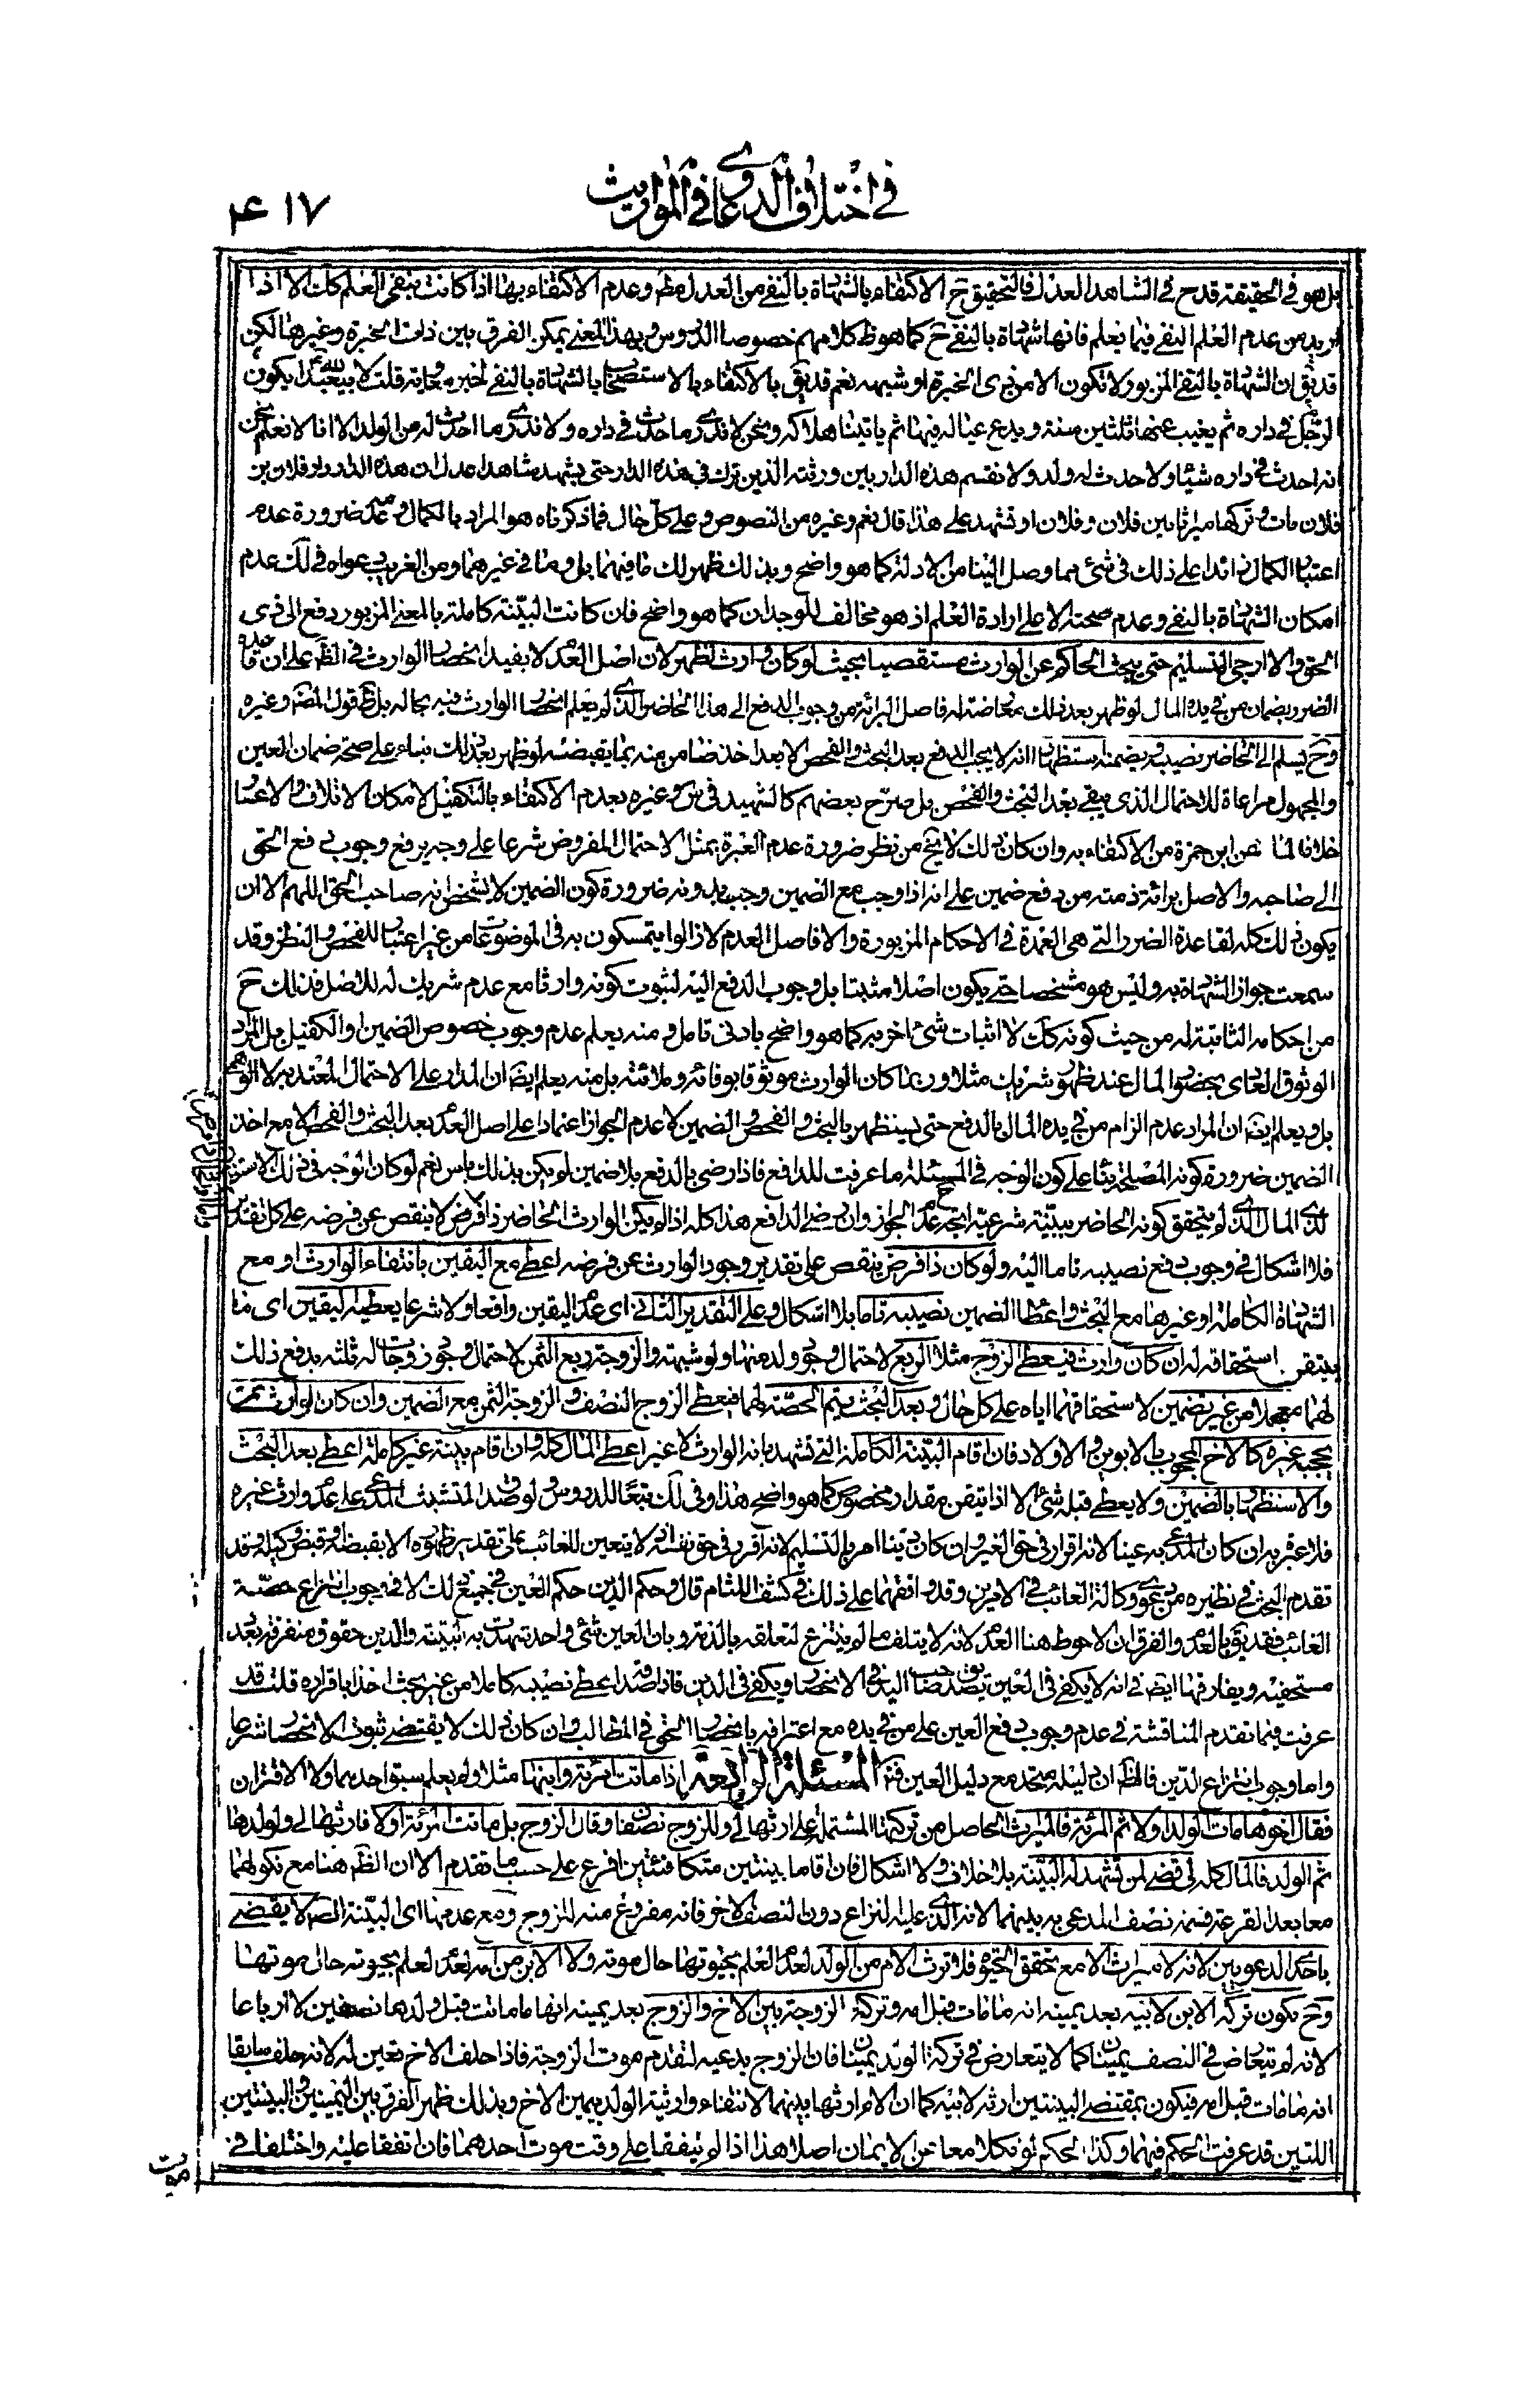 في اختلاف الدعاوي في المواريث
٤١٧
بل هو في الحقيقة قدح في الشاهد العدل فالتحقيق ح الاكتفاء بالشهادة بالنفي من العدل مط وعدم الاكتفاء بها اذا كانت بنفي العلم كك الا اذا
اريد من عدم العلم النفي فيما يعلم فانها شهادة بالنفي ح كما هو ظ كلامهم خصوصا الدروس وبهذا المعنى يمكن الفرق بين ذات الخبرة وغيرها لكن
قد يق ان الشهادة بالنفي المزبور لا تكون الا من ذي الخبرة او شبهه نعم قد يق بالاكتفاء بالاستصحاب بالشهادة بالنفي لخبر معاوية قلت لابيعبد الله يكون
الرجل في داره ثم يغيب عنها ثلثين سنة ويدع عياله فيها ثم ياتينا هلاكه ونحن لا ندري ما حدث في داره ولا ندري ما احدث له من الولد الا انا لا نعلم نحن
انه احدث في داره شيئا ولا حدث له ولد ولا تقسم هذه الدار بين ورثته الذين ترك في هذه الدار حتى يشهد شاهدا عدل ان هذه الدار دار فلان بن
فلان مات وتركها ميراثا بين فلان وفلان او تشهد على هذا قال نعم وغيره من النصوص وعلى كل حال فما ذكرناه هو المراد بالكمال وعدمه ضرورة عدم
اعتبار الكمال زائدا على ذلك في شئ مما وصل الينا من الادلة كما هو واضح وبذلك ظهر لك ما فيهما بل وما في غيرهما ومن الغريب دعواه في لك عدم
امكان الشهادة بالنفي وعدم صحته الا على ارادة العلم اذ هو مخالف للوجدان كما هو واضح فان كانت البينة كاملة بالمعنى المزبور دفع الى ذي
الحق والا ارجئ التسليم حتى يبحث الحاكم عن الوارث مستقصيا بحيث لو كان وارث لظهر لان اصل العدم لا يفيد انحصار الوارث في الظ على ان قاعدة
الضرر بضمان من في يده المال لو ظهر بعد ذلك معارضة له فاصل البرائة من وجوب الدفع الى هذا الحاضر الذي لم يعلم انحصار الوارث فيه بحاله بل ظ قول المص وغيره
وح يسلم الى الحاضر نصيبه ويضمنه استظهارا انه لا يجب الدفع بعد البحث والفحص الا بعد اخذ ضامن منه بما يقبضه لو ظهر بعد ذلك بناء على صحة ضمان العين
والمجهول مراعاة للاحتمال الذي يبقى بعد البحث والفحص بل صرح بعضهم كالشهيد في س وغيره بعدم الاكتفاء بالتكفيل لامكان الاتلاف والاعسار
خلافا لما عن ابن حمزة من الاكتفاء به وان كان ذلك لا يخ من نظر ضرورة عدم العبرة بمثل الاحتمال المفروض شرعا على وجه يرفع وجوب دفع الحق
الى صاحبه والاصل برائة ذمته من دفع ضمين على انه اذا وجب مع الضمين وجب بدونه ضرورة كون الضمين لا يشخص انه صاحب الحق اللهم الا ان
يكون ذلك كله لقاعدة الضرر التي هي العمدة في الاحكام المزبورة والا فاصل العدم لا زالوا يتمسكون به في الموضوعات من غير اعتبار للفحص والنظر وقد
سمعت جواز الشهادة به وليس هو مشخصا حتى يكون اصلا مثبتا بل وجوب الدفع اليه لثبوت كونه وارثا مع عدم شريك له للاصل فذلك ح
من احكامه الثابتة له من حيث كونه كك لا اثبات شئ اخر به كما هو واضح بادنى تامل ومنه يعلم عدم وجوب خصوص الضمين او الكفيل بل المراد
الوثوق العادي بحضور المال عند ظهور شريك مثلا وربما كان الوارث موثوقا بوفائه وملائته بل منه يعلم ايض ان المدار على الاحتمال المعتد به لا الوهم
بل ويعلم ايض ان المراد عدم الزام من في يده المال بالدفع حتى يستظهر بالبحث والفحص والضمين لا عدم الجواز اعتمادا على اصل العدم بعد البحث والفحص الا مع اخذ
الضمين ضرورة كونه المصلحة بناء على كون الوجه في المسئلة ما عرفت للدافع فاذا رضي بالدفع بلا ضمين لم يكن بذلك باس نعم لو كان الوجه في ذلك
لذي المال الذي لم يتحقق كونه الحاضر ببينة شرعية اتجه ح عدم الجواز وان رضي الدافع هذا كله اذا لم يكن الوارث الحاضر ذا فرض لا ينقص عن فرضه على كل تقدير والا
فلا اشكال في وجوب دفع نصيبه تاما اليه ولو كان ذا فرض ينقص على تقدير وجود الوارث عن فرضه اعطي مع اليقين بانتفاء الوارث او مع
الشهادة الكاملة او غيرها مع البحث واعطاء الضمين نصيبه تاما بلا اشكال وعلى التقدير الثاني اى عدم اليقين واقعا ولا شرعا يعطيه اليقين اى ما
يتيقن استحقاقه له ان كان وارث فيعطى الزوج مثلا الربع لاحتمال وجود ولد منها ولو شبهة والزوجة ربع الثمن لاحتمال وجود زوجات له ثلثة يدفع ذلك
لهما معجلا من غير تضمين لاستحقاقهما اياه على كل حال وبعد البحث يتم الحصة لهما فيعطى الزوج النصف والزوجة الثمن مع الضمين وان كان الوارث ممن
يحجبه غيره كالاخ المحجوب بالابوين والاولاد فان اقام البينة الكاملة التي تشهد بانه الوارث لا غير اعطي المال كله وان اقام بينة غير كاملة اعطي بعد البحث
والاستظهار بالضمين ولا يعطى قبله شئ الا اذا تيقن مقدار مخصوص كما هو واضح هذا وفي لك تبعا للدروس لو صدق المتشبث المدعي على عدم وارث غيره
فلا عبرة به ان كان المدعى به عينا لانه اقرار في حق الغير وان كان دينا امر بالتسليم لانه اقر في حق نفسه اذ لا يتعين للغائب على تقدير ظهوره الا بقبضه او قبض وكيله وقد
تقدم البحث في نظيره من دعوى وكالة الغائب في الامرين وقد وافقهما على ذلك في كشف اللثام قال وحكم الدين حكم العين في جميع ذلك الا في وجوب انتزاع حصة
الغائب فقد يق بالعدم والفرق ان الاحوط هنا العدم لانه لا يتلف ما لم ينتزع لتعلقه بالذمة وبان العين شئ واحد شهدت به البينة والدين حقوق متفرقة بعدد
مستحقيه ويفارقها ايض في انه لا يكفي في العين تصديق صاحب اليد في الانحصار ويكفي في الدين فاذا صدق اعطى نصيبه كاملا من غير بحث اخذا باقراره قلت قد
عرفت فيما تقدم المناقشة في عدم وجوب دفع العين على من في يده مع اعترافه بانحصار الحق في المطالب وان كان ذلك لا يقتضي ثبوت الانحصار شرعا
واما وجوب انتزاع الدين فالظ ان دليله متحد مع دليل العين فتدبر المسئلة الرابعة اذا ماتت امرئة وابنها مثلا ولم يعلم سبق احدهما ولا الاقتران
فقال اخوها مات الولد اولا ثم المرئة فالميراث الحاصل من تركتها المشتملة على ارثها لي وللزوج نصفان وقال الزوج بل ماتت المرئة اولا فارثها لي ولولدها
ثم الولد فالمال كله لي قضي لمن تشهد له البينة بلا خلاف ولا اشكال فان اقاما بينتين متكافئتين اقرع على حسب ما تقدم الا ان الظ هنا مع نكولهما
معا بعد القرعة قسمة نصف المدعى به بينهما لانه الذي عليه النزاع دون النصف الاخر فانه مفروغ منه للزوج ومع عدمها اى البينة الصالحة لا يقضى
باحدى الدعويين لانه لا ميراث الا مع تحقق الحيوة فلا ترث الام من الولد لعدم العلم بحيوتها حال موته ولا الابن من امه لعدم العلم بحيوته حال موتها
وح تكون تركة الابن لابيه بعد يمينه انه ما مات قبل امه وتركة الزوجة بين الاخ والزوج بعد يمينه انها ما ماتت قبل ولدها نصفين لا ارباعا
لانه لم يتعارض في النصف يمينان كما لا يتعارض في تركة الولد يمينان فان الزوج يدعيه لتقدم موت الزوجة فاذا حلف الاخ تعين له لانه حلف سابقا
انه ما مات قبل امه فيكون بمقتضى البينتين ارثه لابيه كما ان الام ارثها بينهما لانتفاء وارثية الولد بيمين الاخ وبذلك ظهر الفرق بين اليمينين والبينتين
اللتين قد عرفت الحكم فيهما وكذا الحكم لو نكلا معا عن الايمان اصلا هذا اذا لم يتفقا على وقت موت احدهما فان اتفقا عليه واختلفا في
موت